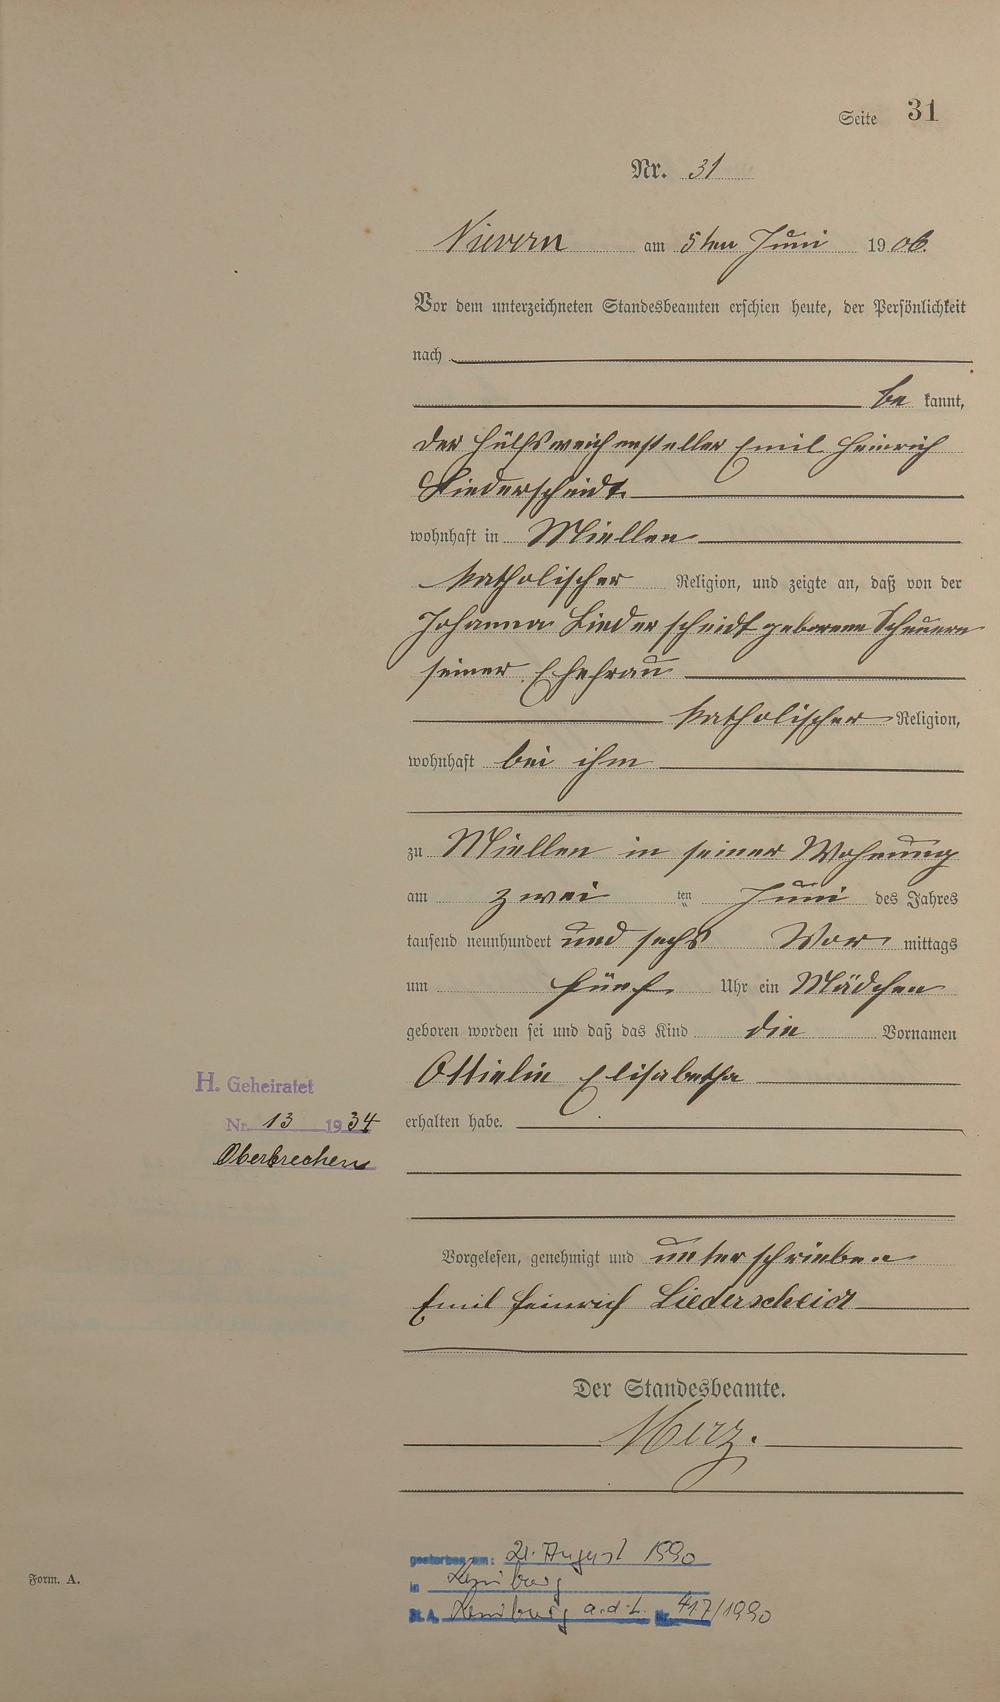 Seite 31
Nr. 31
Nievern am 5ten Juni 1906.
Vor dem unterzeichneten Standesbeamten erschien heute, der Persönlichkeit
nach
bekannt,
der Hülfsweichensteller Emil Heinrich
Liederscheidt
wohnhaft in Miellen
katholischer Religion, und zeigte an, daß von der
Johanna Liederscheidt geborene Scheuern
seiner Ehefrau
katholischer Religion,
wohnhaft bei ihm
zu Miellen in seiner Wohnung
am zwei ten Juni des Jahres
tausend neunhundert und sechs Vor mittags
um fünf Uhr ein Mädchen
geboren worden sei und daß das Kind die Vornamen
Ottielie Elisabetha
H. Geheiratet
Nr. 13 1934
Oberbrechen
erhalten habe.
Vorgelesen, genehmigt und unterschrieben
Emil Heinrich Liederscheid
Der Standesbeamte.
Merz.
gestorben am: 21. August 1990
in Limburg
St. A. Limburg a.d.L. Nr. 417/1990
Form. A.